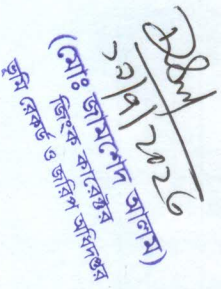 ১১/৭/২০২৬
(মোঃ জামশেদ আলম)
জিংক কারেক্টর
ভূমি রেকর্ড ও জরিপ অধিদপ্তর